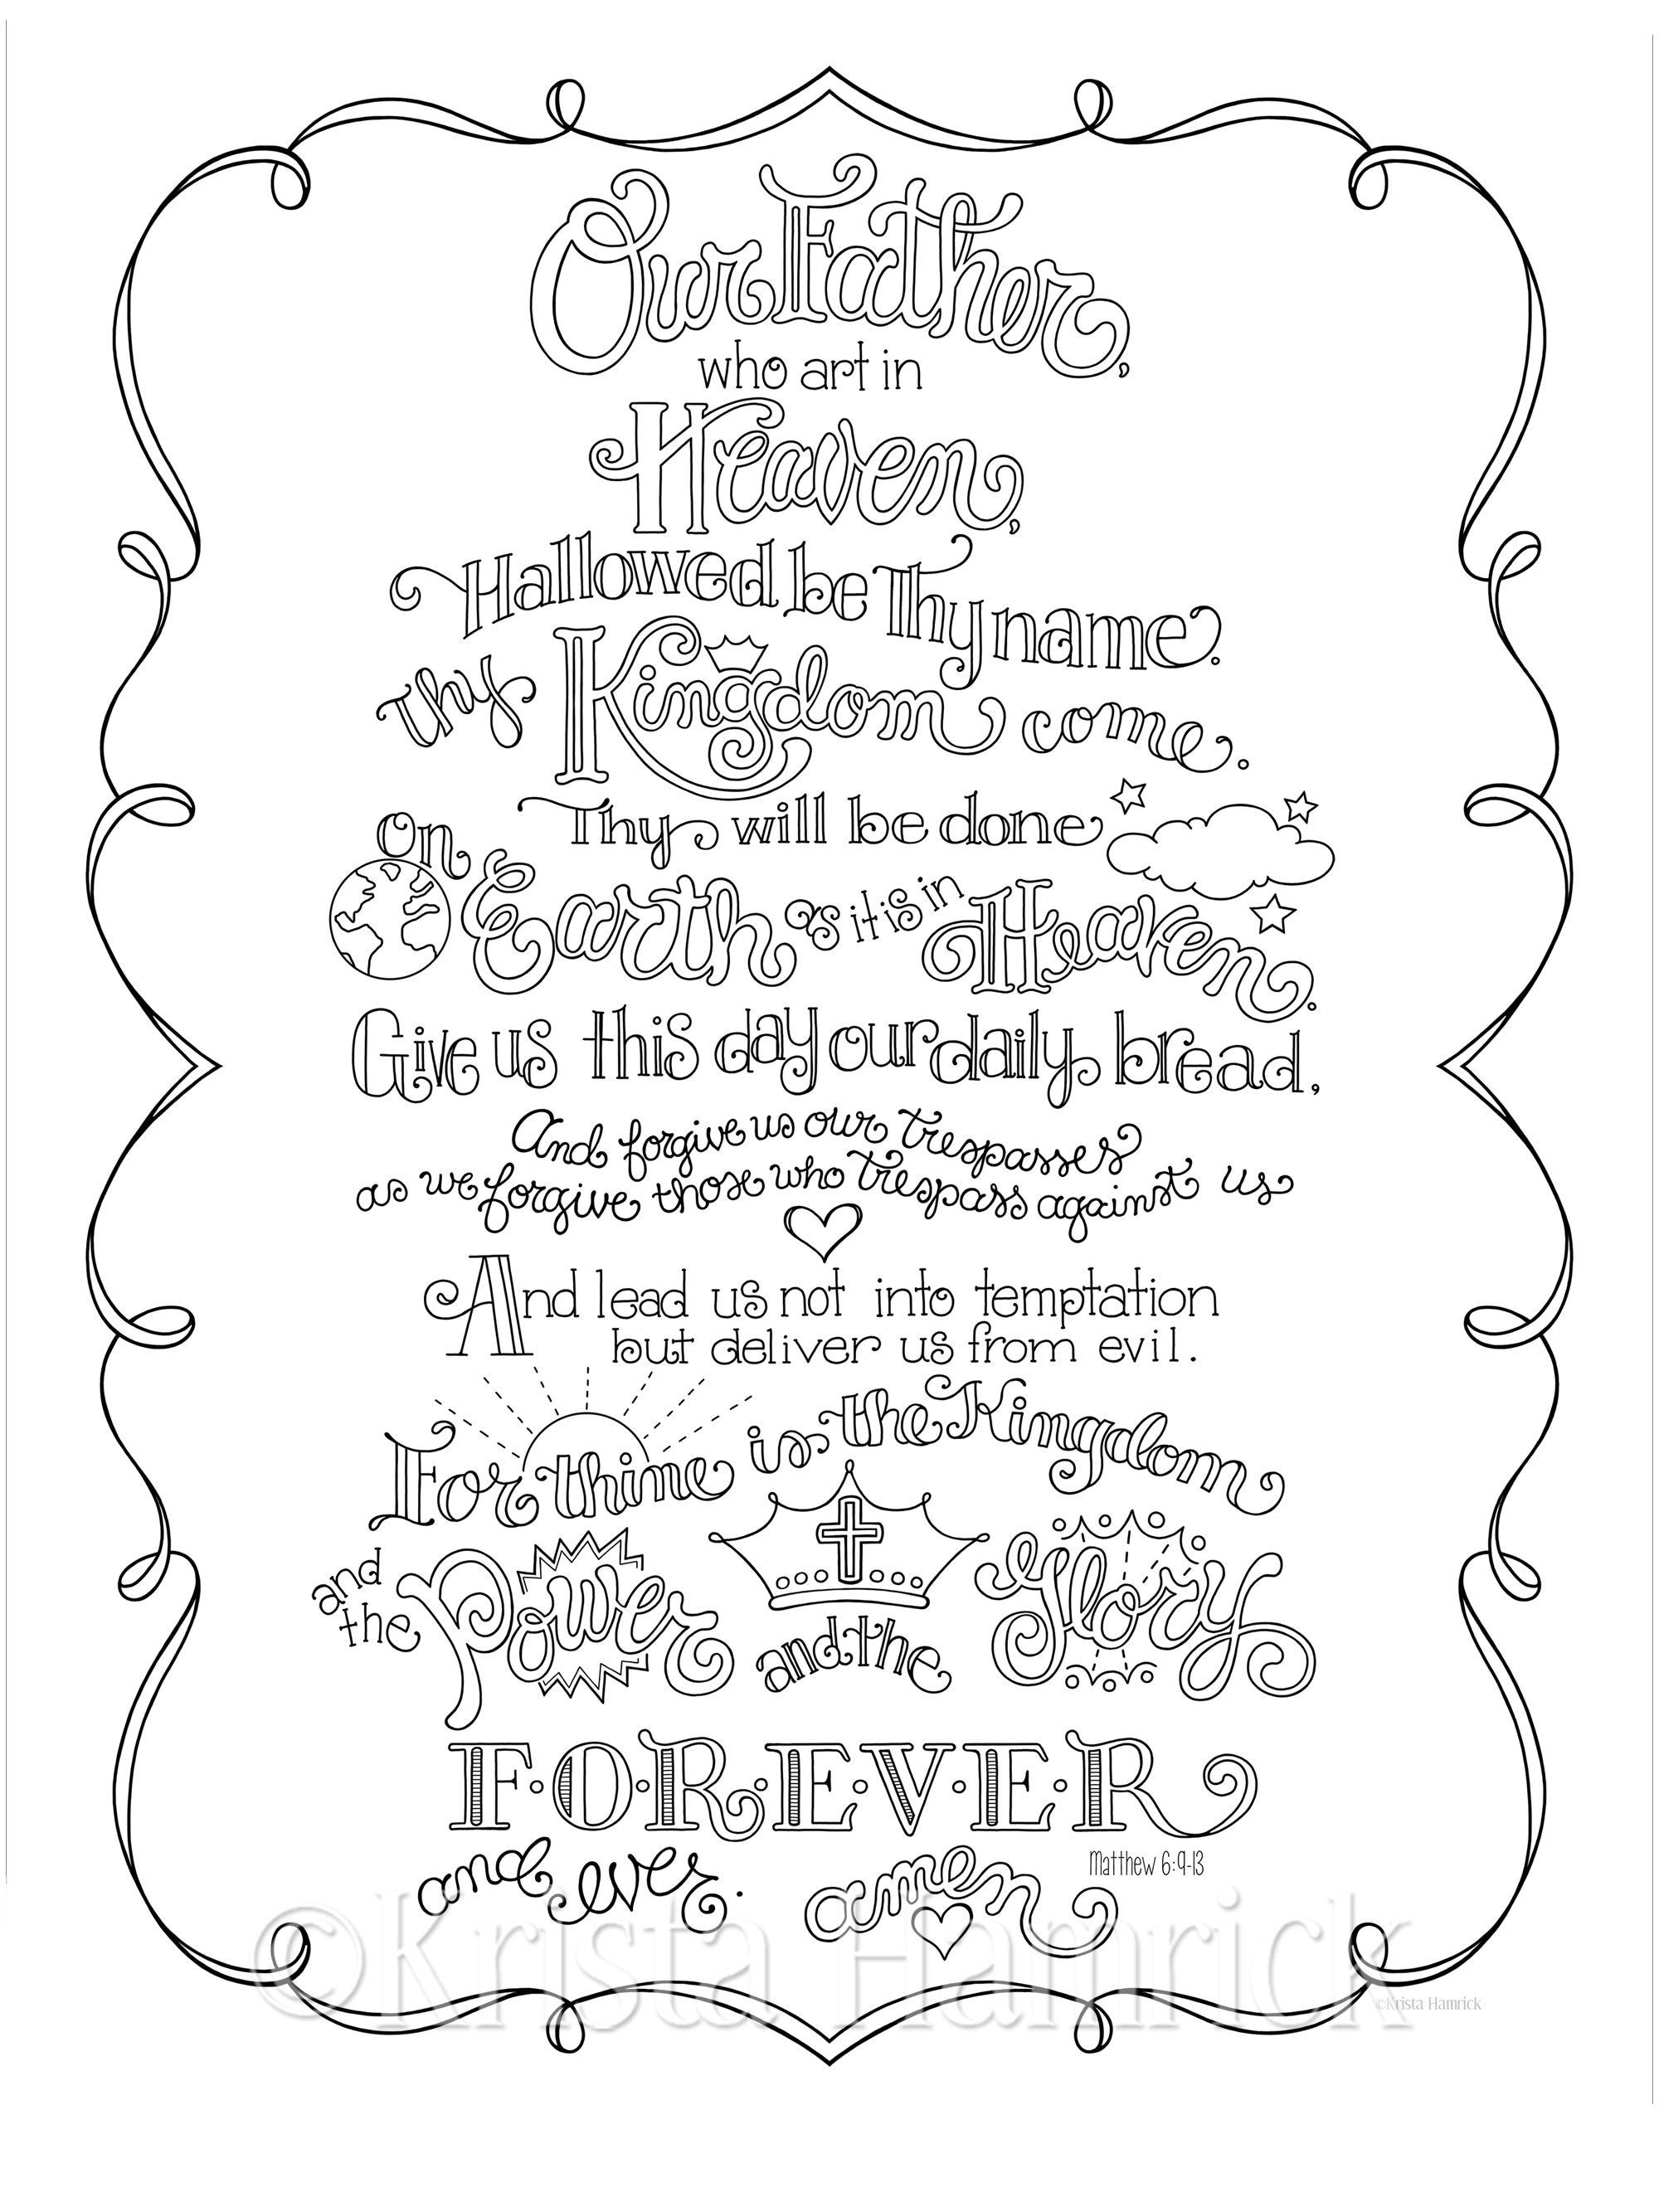 Our Father,
who art in
Heaven,
Hallowed be Thy name.
Thy Kingdom come.
Thy will be done
on Earth as it is in Heaven.
Give us this day our daily bread,
And forgive us our trespasses
as we forgive those who trespass against us
And lead us not into temptation
but deliver us from evil.
For thine is the Kingdom
and the Power and the Glory
F·O·R·E·V·E·R
and ever. amen
Matthew 6:9-13
©Krista Hamrick
©Krista Hamrick